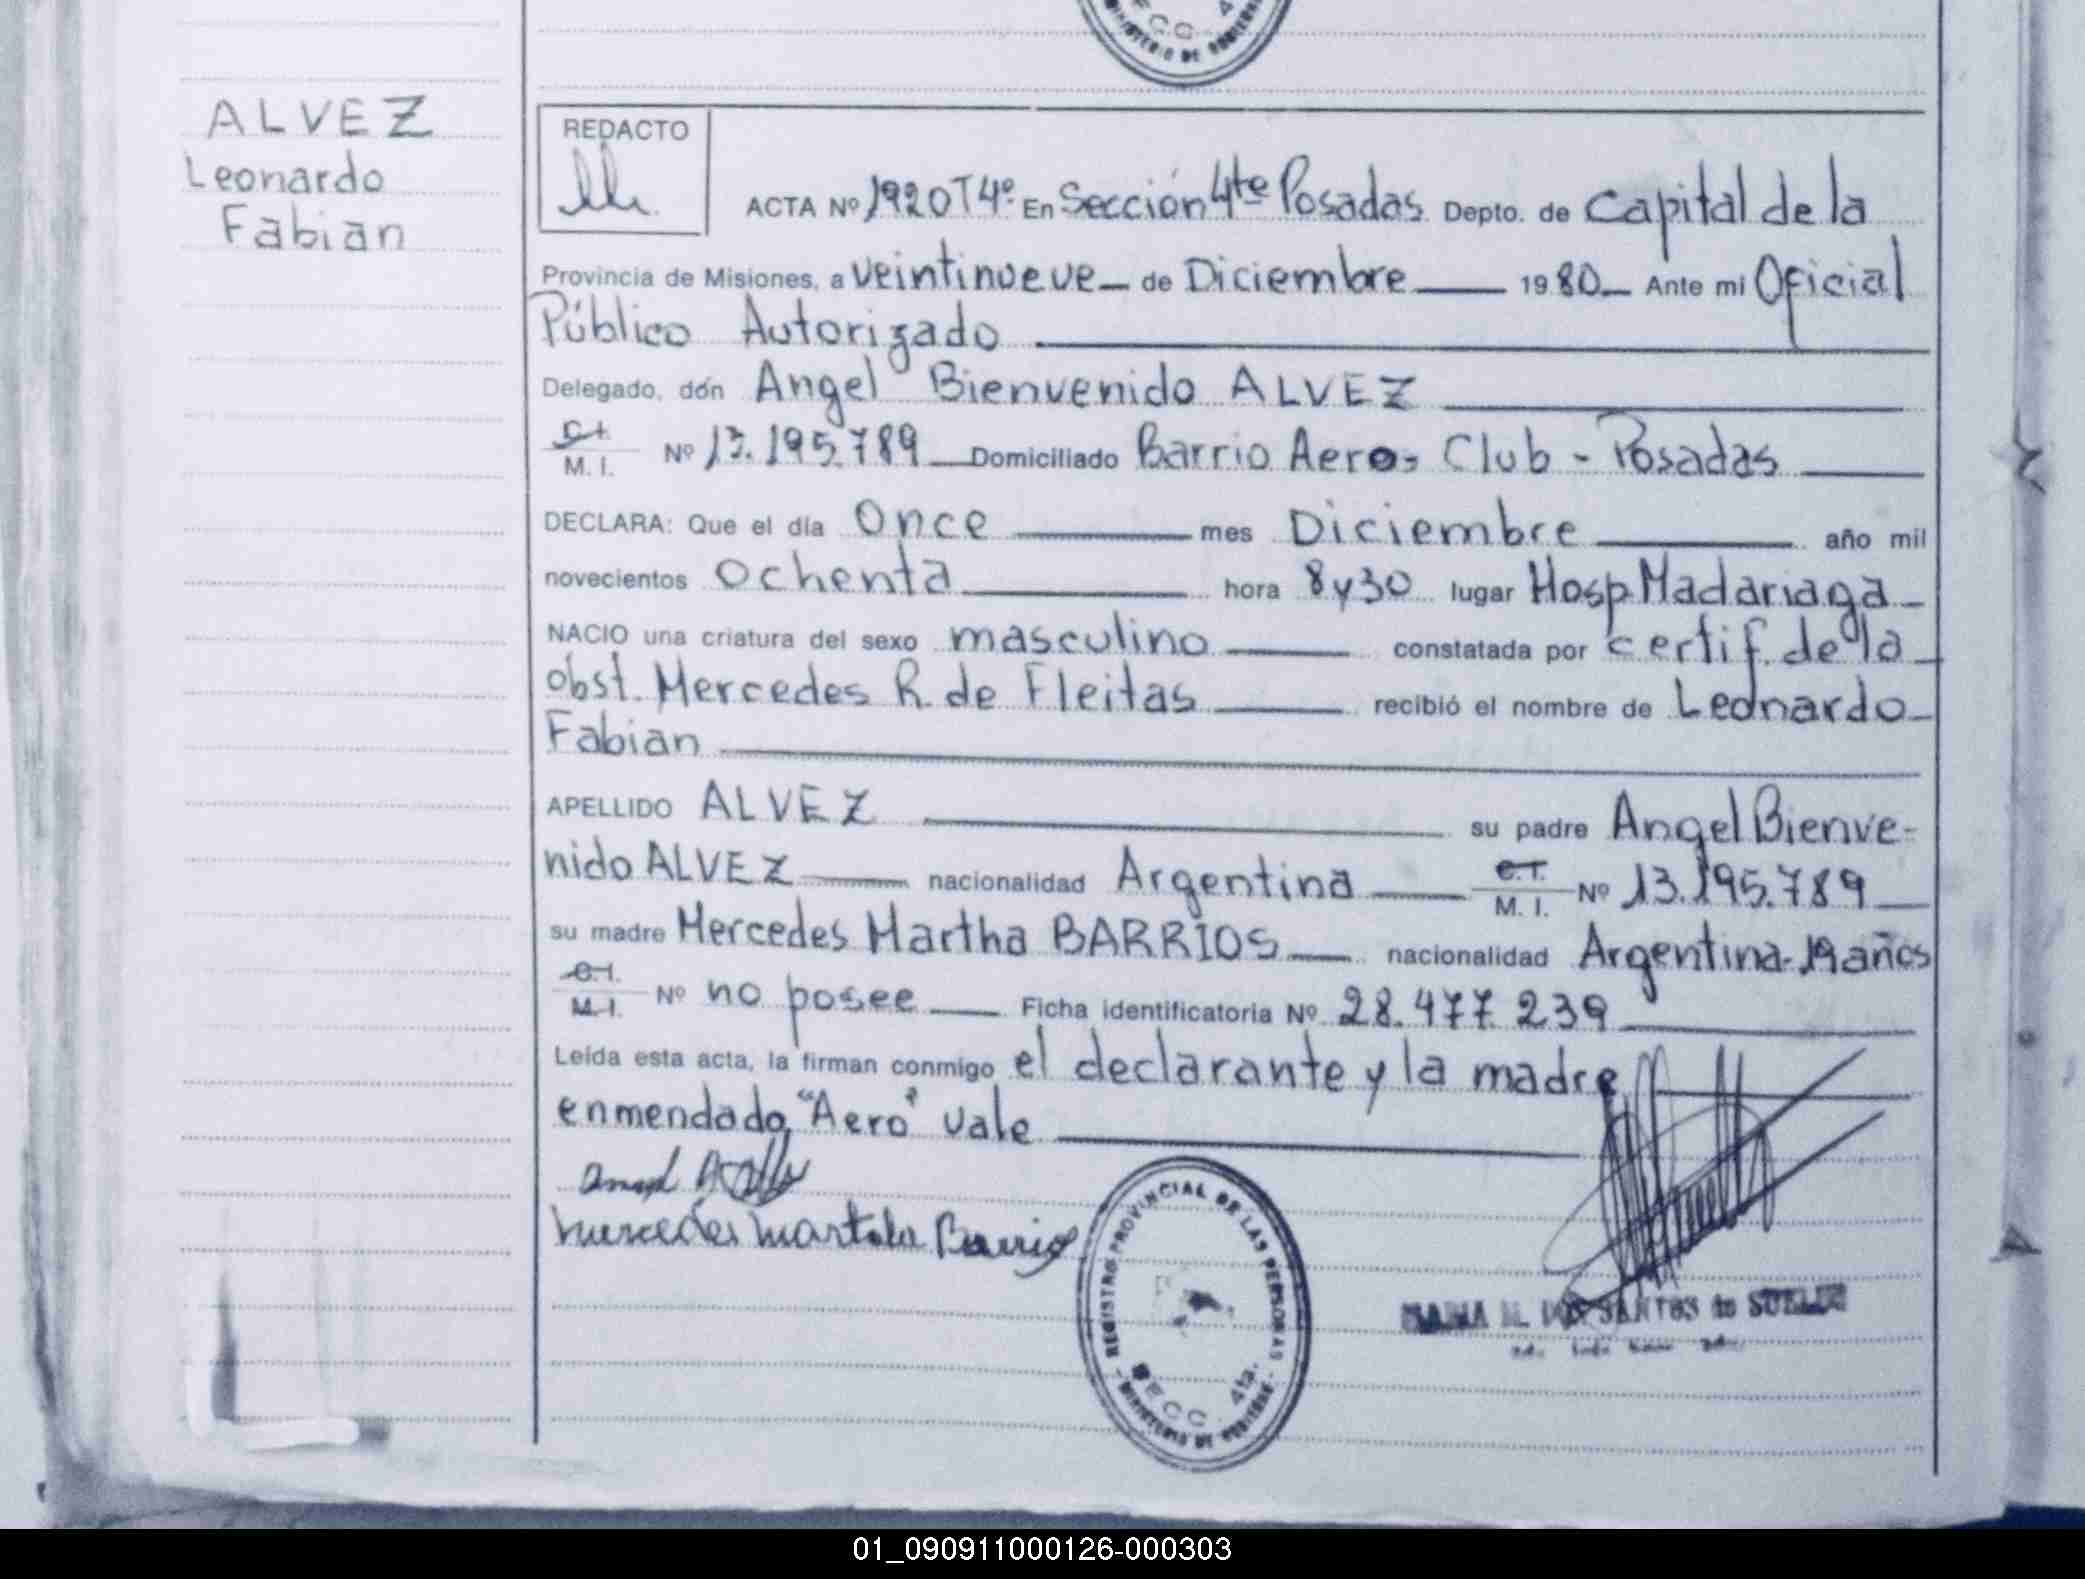 SECC 4
MINISTERIO DE GOBIERNO
ALVEZ
Leonardo
Fabian
REDACTO
ACTA Nº 1920 T4º En Sección 4te Posadas Depto. de Capital de la
Provincia de Misiones, a veintinueve de Diciembre 1980 Ante mi Oficial
Público Autorizado
Delegado, dón Angel Bienvenido ALVEZ
C.I. M. I. Nº 13.195.789 Domiciliado Barrio Aero- Club - Posadas
DECLARA: Que el día Once mes Diciembre año mil
novecientos ochenta hora 8 y 30 lugar Hosp. Madariaga
NACIO una criatura del sexo masculino constatada por certif. de la
obst. Mercedes R. de Fleitas recibió el nombre de Leonardo
Fabian
APELLIDO ALVEZ su padre Angel Bienve-
nido ALVEZ nacionalidad Argentina C.I. M. I. Nº 13.195.789
su madre Mercedes Martha BARRIOS nacionalidad Argentina-19 años
C.I. M.I. Nº no posee Ficha identificatoria Nº 28.477.239
Leída esta acta, la firman conmigo el declarante y la madre
enmendado "Aero" vale
Mercedes Martha Barrios
REGISTRO PROVINCIAL DE LAS PERSONAS
SECC. 4ta.
MINISTERIO DE GOBIERNO
MARIA M. DOS SANTOS de
01_090911000126-000303